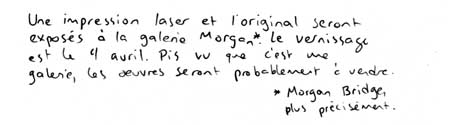 Une impression laser et l'original seront
exposés à la galerie Morgan*. Le vernissage
est le 4 avril. Pis vu que c'est une
galerie, les oeuvres seront probablement à vendre.
* Morgan Bridge,
plus précisément.